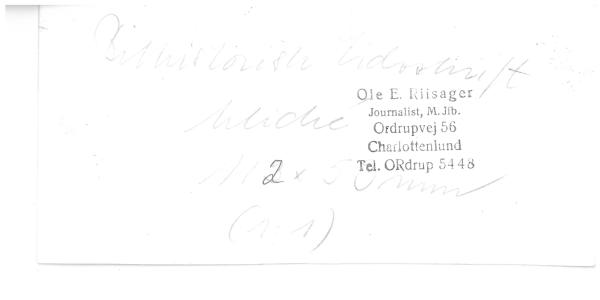 Bilhistorisk Tidsskrift
Ole E. Riisager
Journalist, M. Jfb.
kliché
Ordrupvej 56
Charlottenlund
Tel. ORdrup 5448
112 x 50 mm
(1:1)